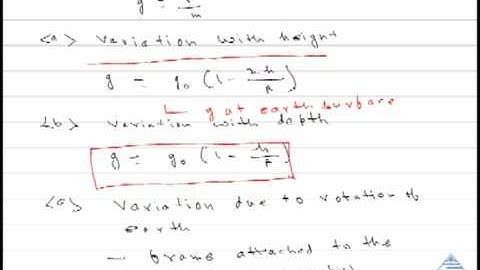 g = F/m
<a> variation with height
g = g₀ (1 - 2h/R)
g at earth surface
<b> variation with depth
g = g₀ (1 - h/R)
<c> variation due to rotation of
earth
- frame attached to the